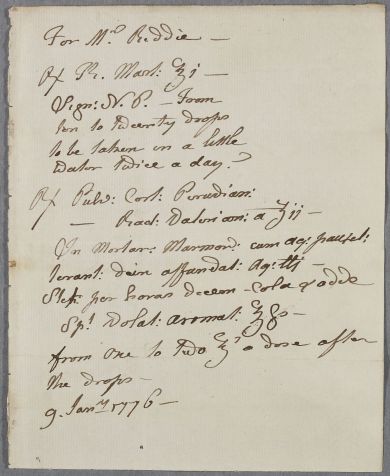 For Mrs. Reddie —
℞ Tr. Mart: ℥j —
Sign: N. P. — From
ten to twenty drops
to be taken in a little
water twice a day.
℞ Pulv: Cort: Peruvian:
— Rad: Valerian: a ℥ij —
In Mortar: Marmor: cum aq: pauxil:
terant: dein affundat: Aq: ℔j —
Stet per horas decem — Cola & adde
Spt. Volat: aromat: ℥ss —
from one to two ℥s a dose after
the drops —
9. Janry. 1776 —